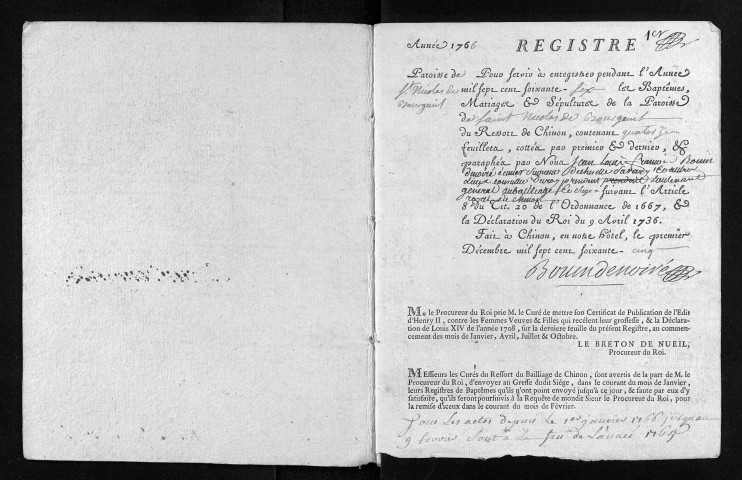 Année 1766
REGISTRE
1er
Paroisse de
St Nicolas de
Bourgueil
Pour servir à enregistrer pendant l'Année
mil sept cent soixante-six les Baptêmes,
Mariages & Sépultures de la Paroisse
de Saint Nicolas de Bourgueil
du Ressort de Chinon, contenant quatorze
feuillets, cottés par premier & dernier, &
paraphés par Nous Jean Louis François Bouin
denoiré écuier Seigneur
general au bailliage & Siege suivant l'Article
royal de Chinon
8e du Tit. 20 de l'Ordonnance de 1667, &
la Déclaration du Roi du 9 Avril 1736.
Fait à Chinon, en notre hôtel, le premier
Décembre mil sept cent soixante-cinq
Bouindenoiré
M. le Procureur du Roi prie M. le Curé de mettre son Certificat de Publication de l'Edit
d'Henry II, contre les Femmes Veuves & Filles qui recélent leur grossesse, & la Déclara-
tion de Louis XIV de l'année 1708, sur la derniere feuille du présent Registre, au commen-
cement des mois de Janvier, Avril, Juillet & Octobre.
LE BRETON DE NUEIL,
Procureur du Roi.
MEssieurs les Curés du Ressort du Bailliage de Chinon, sont avertis de la part de M. le
Procureur du Roi, d'envoyer au Greffe dudit Siége, dans le courant du mois de Janvier,
leurs Registres de Baptêmes qu'ils n'ont point envoyé jusqu'à ce jour, & faute par eux d'y
satisfaire, qu'ils seront poursuivis à la Requête de mondit Sieur le Procureur du Roi, pour
la remise d'iceux dans le courant du mois de Février.
Tous les actes depuis le 1er janvier 1766 jusquau
9 fevrier sont à la fin de l'année 1765